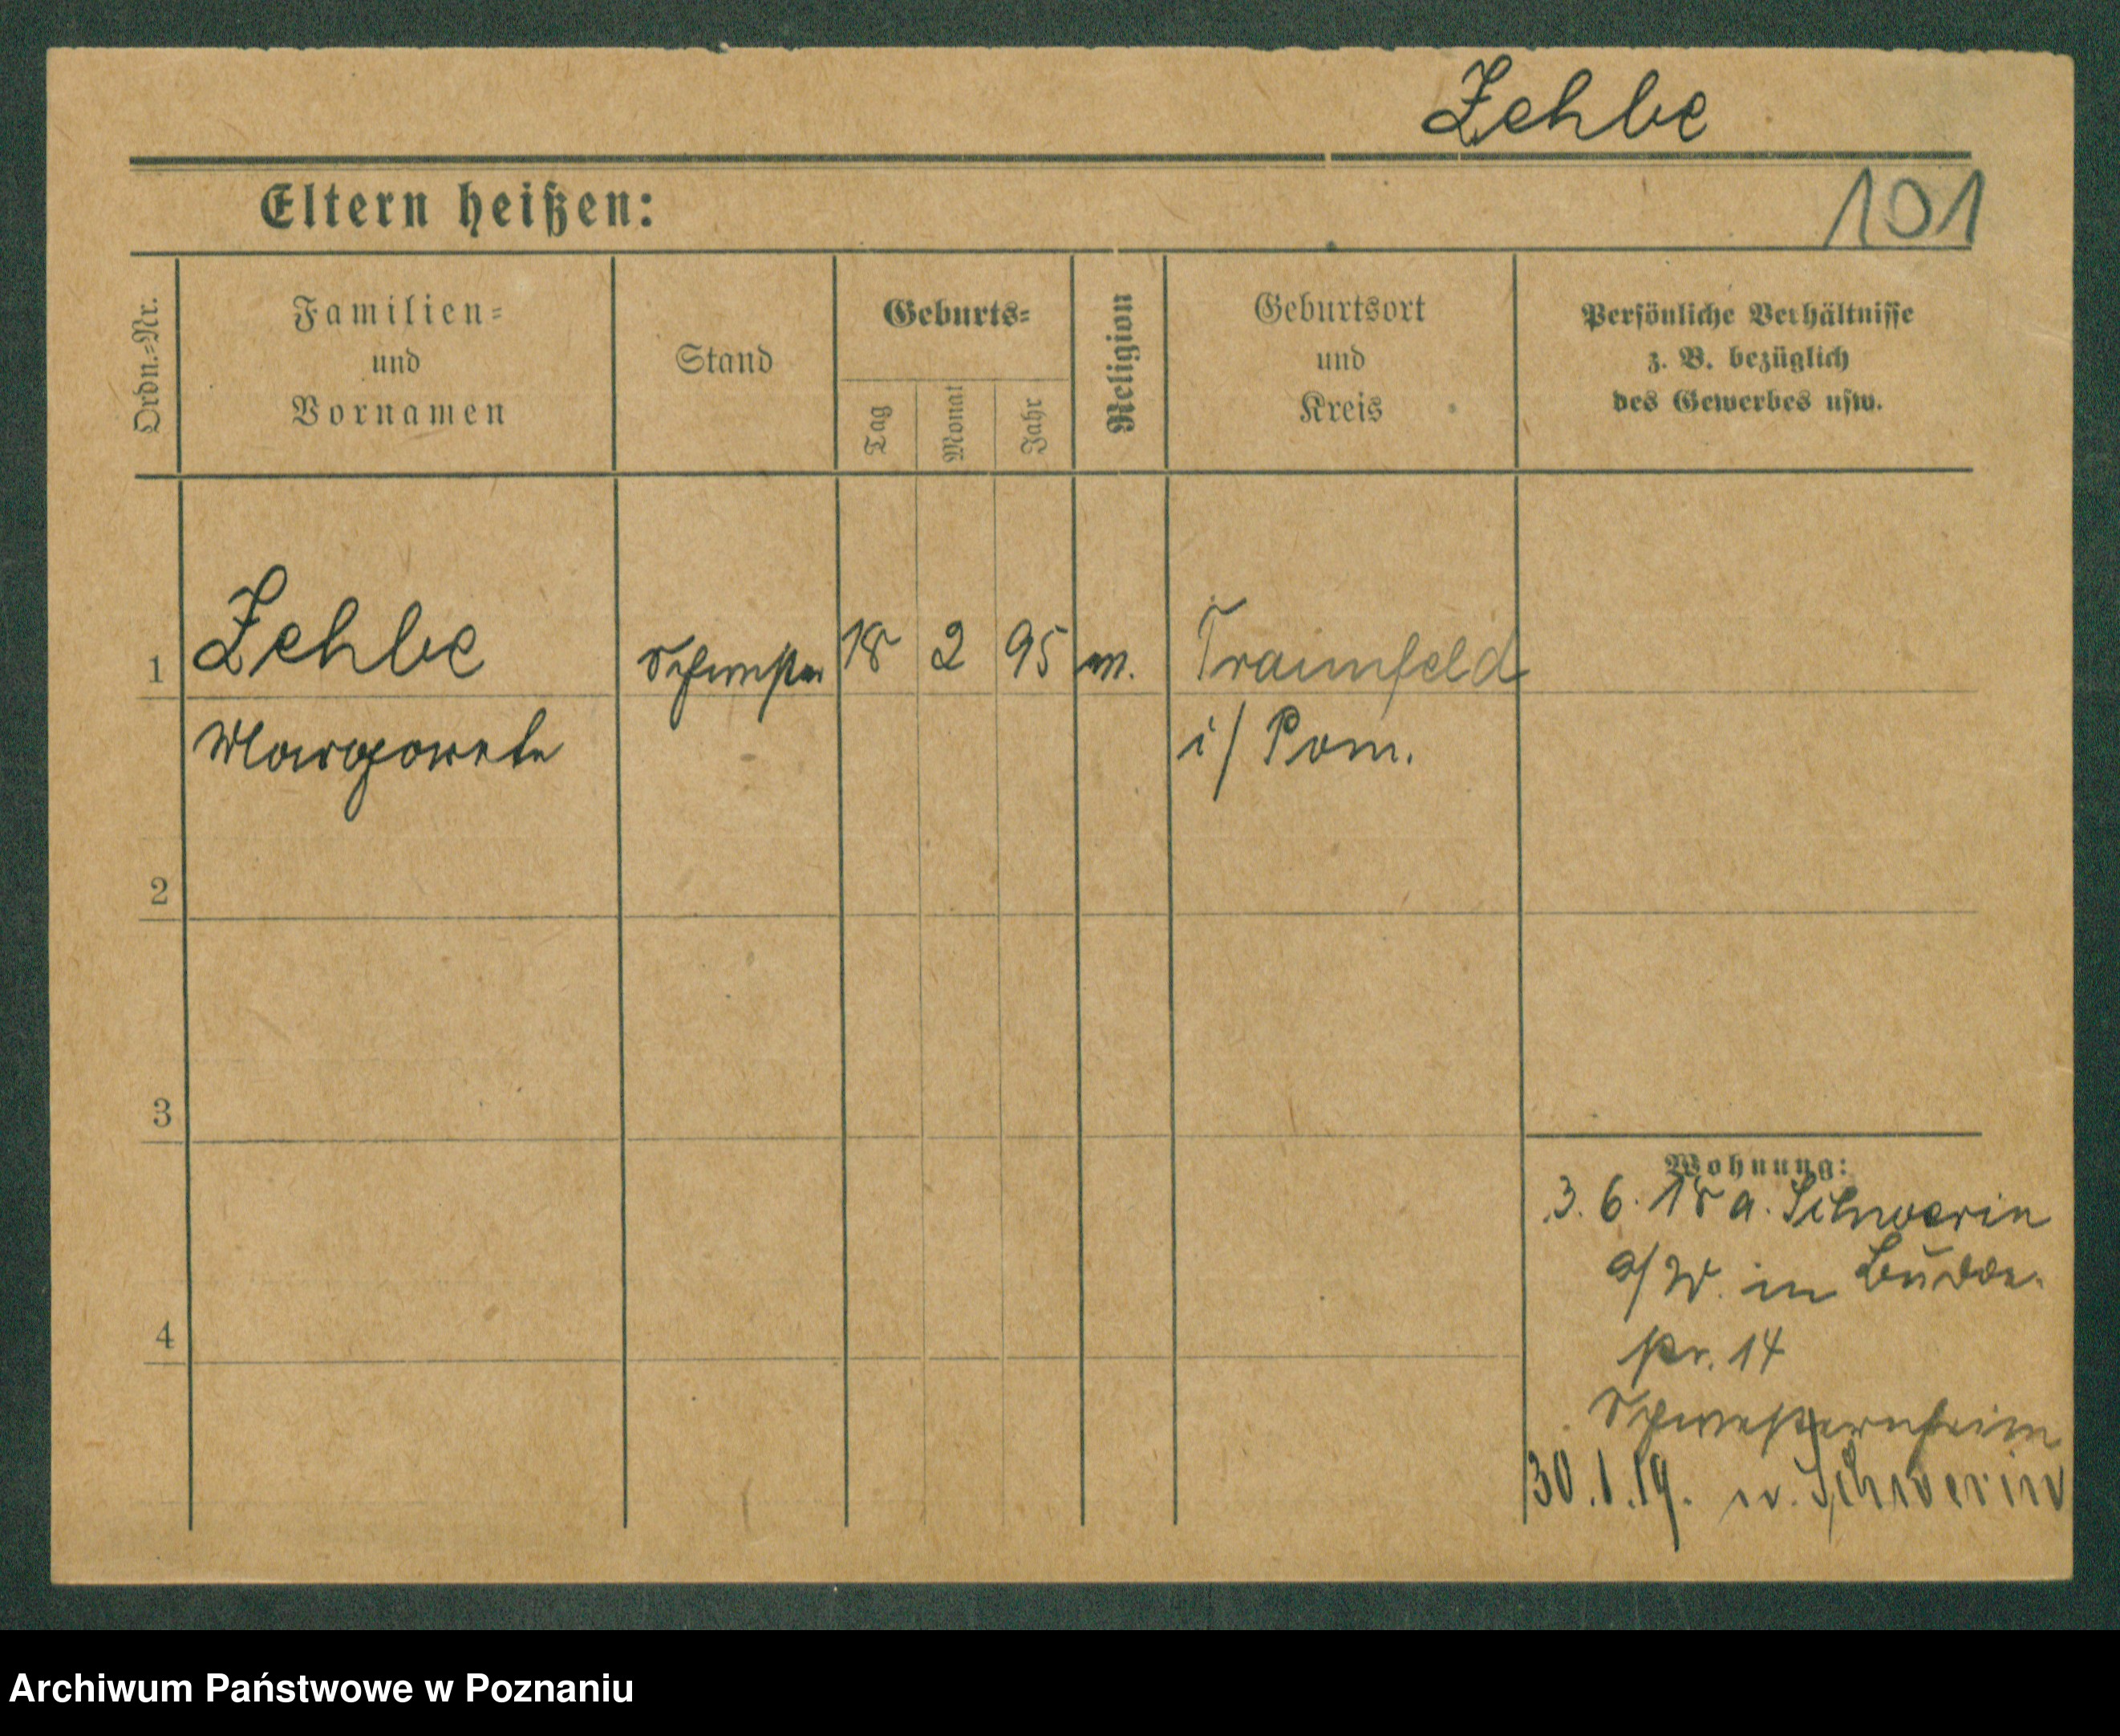 Zehbe
Eltern heißen:
101
Ordn.-Nr.
Familien-
und
Vornamen
Stand
Geburts-
Tag
Monat
Jahr
Religion
Geburtsort
und
Kreis
Persönliche Verhältnisse
z. B. bezüglich
des Gewerbes usw.
1
Zehbe
Schwester
18
2
95
Margarete
i/ Pom.
2
3
4
Wohnung:
3. 6. 18 a. Schwerin
a/W. in Budde-
str. 14
Schwesternheim
30.1.19. n. Schwerin
Archiwum Państwowe w Poznaniu